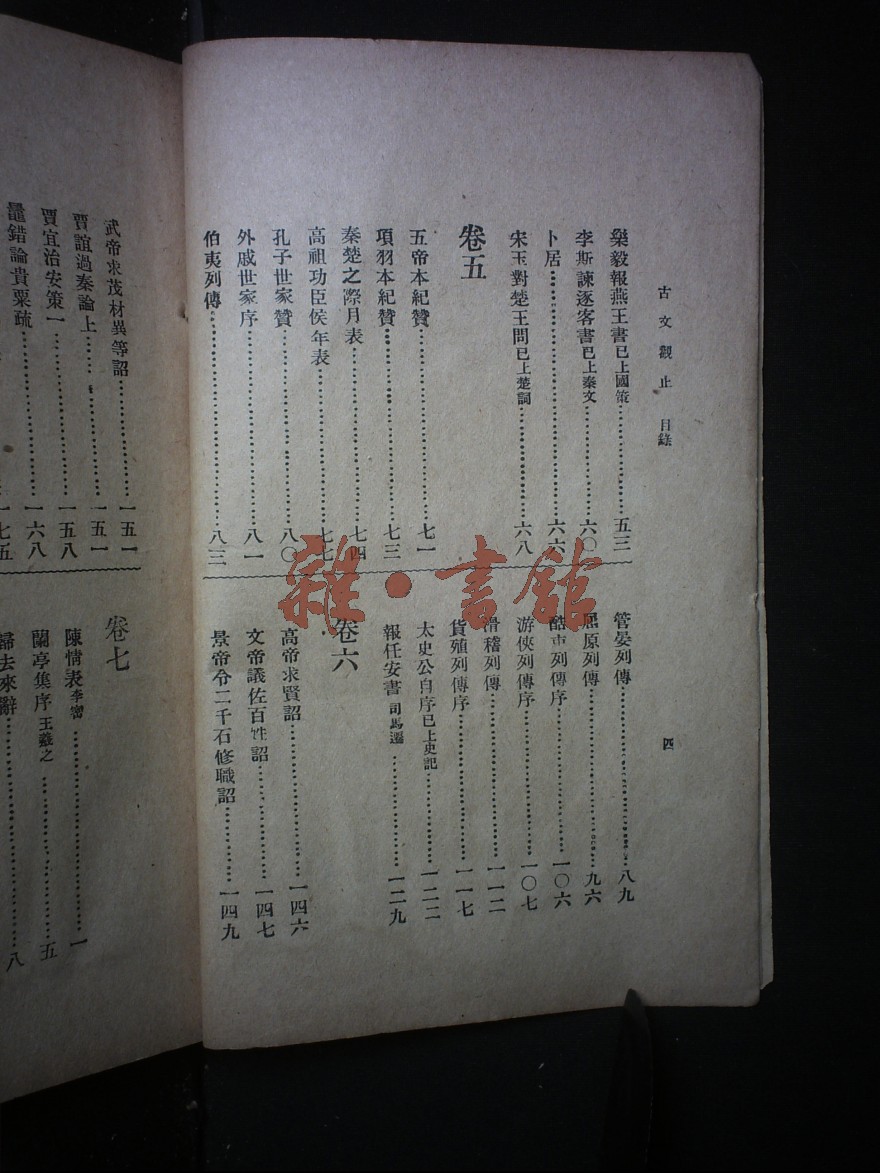 古文觀止 目錄 四
樂毅報燕王書已上國策……五三
李斯諫逐客書已上秦文……六〇
卜居……六六
宋玉對楚王問已上楚詞……六八
卷五
五帝本紀贊……七一
項羽本紀贊……七三
秦楚之際月表……七四
高祖功臣侯年表……七七
孔子世家贊……八〇
外戚世家序……八一
伯夷列傳……八三
管晏列傳……八九
屈原列傳……九六
酷吏列傳序……一〇六
游俠列傳序……一〇七
滑稽列傳……一一二
貨殖列傳序……一一七
太史公自序已上史記……一二二
報任安書 司馬遷……一二九
卷六
高帝求賢詔……一四六
文帝議佐百姓詔……一四七
景帝令二千石修職詔……一四九
武帝求茂材異等詔……一五一
賈誼過秦論上……一五一
賈宜治安策一……一五八
鼂錯論貴粟疏……一六八
一七五
卷七
陳情表 李密……一
蘭亭集序 王羲之……五
歸去來辭……八
雜·書館